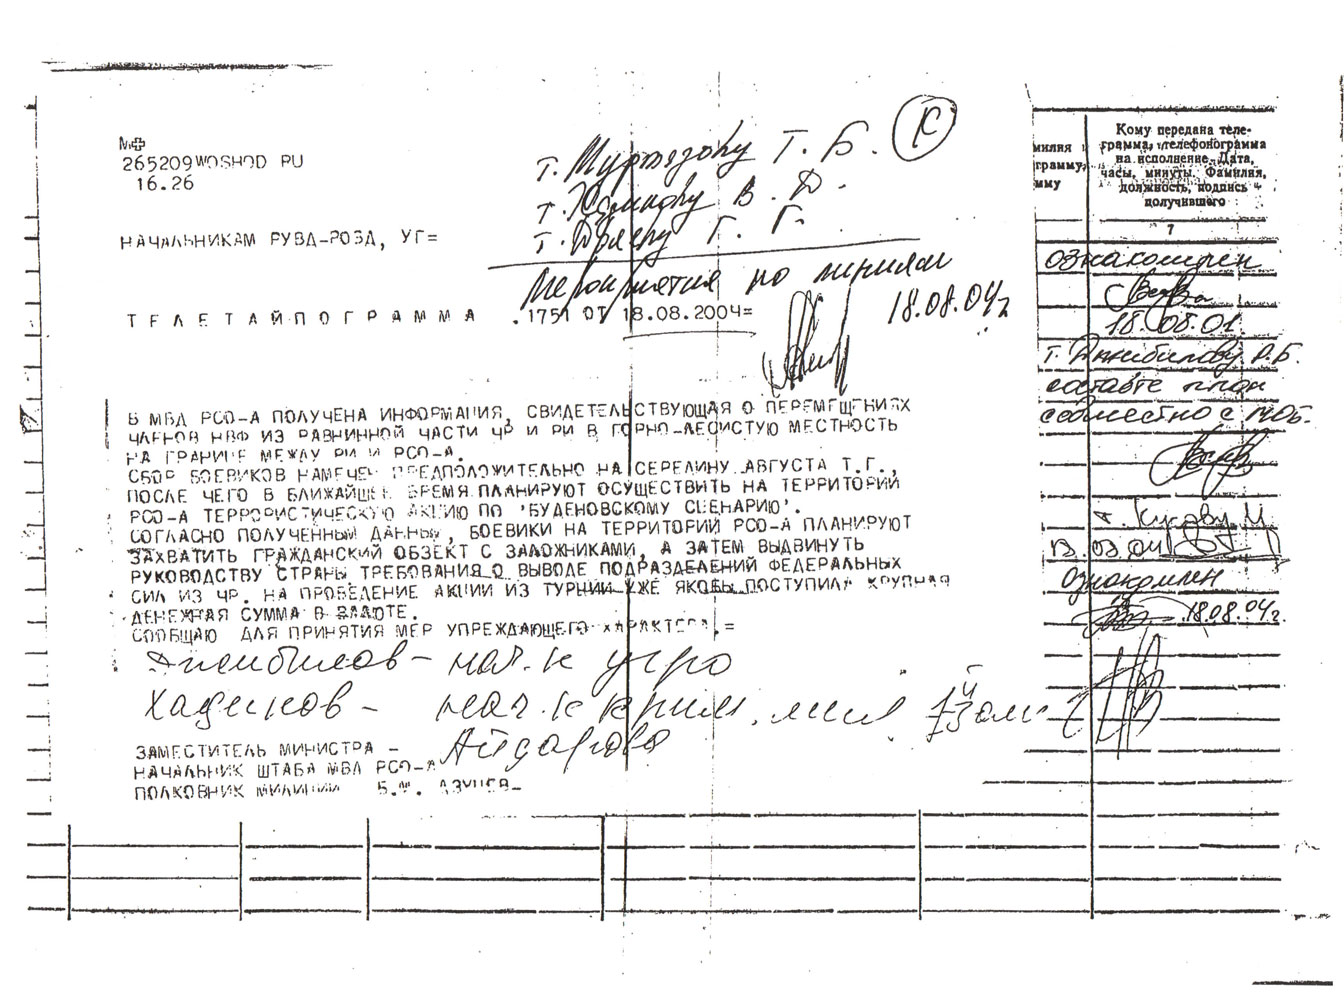 МФ
265209 WOSHOD PU
16.26
т. Муртазову Т. Б. К
т. В. Д.
т. Дряеву Г. Г.
НАЧАЛЬНИКАМ РУВД-РОВД, УГ=
Мероприятия по линиям
18.08.04г
ТЕЛЕТАЙПОГРАММА .1751 ОТ 18.08.2004=
В МВД РСО-А ПОЛУЧЕНА ИНФОРМАЦИЯ, СВИДЕТЕЛЬСТВУЮЩАЯ О ПЕРЕМЕЩЕНИЯХ
ЧЛЕНОВ НВФ ИЗ РАВНИННОЙ ЧАСТИ ЧР И РИ В ГОРНО-ЛЕСИСТУЮ МЕСТНОСТЬ
НА ГРАНИЦЕ МЕЖДУ РИ И РСО-А.
СБОР БОЕВИКОВ НАМЕЧЕН ПРЕДПОЛОЖИТЕЛЬНО НА СЕРЕДИНУ АВГУСТА Т.Г.,
ПОСЛЕ ЧЕГО В БЛИЖАЙШЕЕ ВРЕМЯ ПЛАНИРУЮТ ОСУЩЕСТВИТЬ НА ТЕРРИТОРИЙ
РСО-А ТЕРРОРИСТИЧЕСКУЮ АКЦИЮ ПО 'БУДЕНОВСКОМУ СЦЕНАРИЮ'.
СОГЛАСНО ПОЛУЧЕННЫМ ДАННЫМ, БОЕВИКИ НА ТЕРРИТОРИЙ РСО-А ПЛАНИРУЮТ
ЗАХВАТИТЬ ГРАЖДАНСКИЙ ОБЗЕКТ С ЗАЛОЖНИКАМИ, А ЗАТЕМ ВЫДВИНУТЬ
РУКОВОДСТВУ СТРАНЫ ТРЕБОВАНИЯ О ВЫВОДЕ ПОДРАЗДЕЛЕНИЙ ФЕДЕРАЛЬНЫХ
СИЛ ИЗ ЧР. НА ПРОВЕДЕНИЕ АКЦИИ ИЗ ТУРЦИИ УЖЕ ЯКОБЫ ПОСТУПИЛА КРУПНАЯ
ДЕНЕЖНАЯ СУММА В ВАЛЮТЕ.
СООБЩАЮ ДЛЯ ПРИНЯТИЯ МЕР УПРЕЖДАЮЩЕГО ХАРАКТЕРА.=
Джибилов - нач. к угро
Хадиков - нач. к крим. мил
Айдарова
ЗАМЕСТИТЕЛЬ МИНИСТРА -
НАЧАЛЬНИК ШТАБА МВД РСО-А
ПОЛКОВНИК МИЛИЦИИ Б.М. ДЗУЦЕВ-
милия
грамму,
мму
Кому передана теле-
грамма, телефонограмма
на исполнение. Дата,
часы, минуты. Фамилия,
должность, подпись
получившего
7
ознакомлен
18.08.01.
т. Джибилову Р.Б.
составте план
совместно с МОБ.
ознакомлен
18.08.04г.